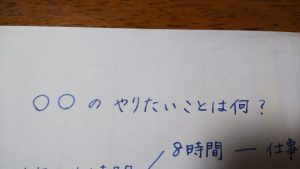 ○○のやりたいことは何？
8時間 — 仕事
時間